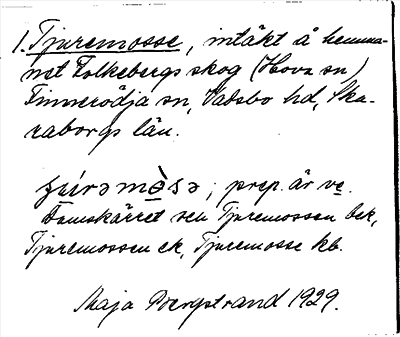 1. Tjuremosse, intäkt å hemma-
net Folkebergs skog (Hova sn)
Finnerödja sn, Vadsbo hd, Ska-
raborgs län.
prep. är ve.
Damskärret sen Tjuremossen bek,
Tjuremossen ek, Tjuremosse kb.
Maja Bergstrand 1929.